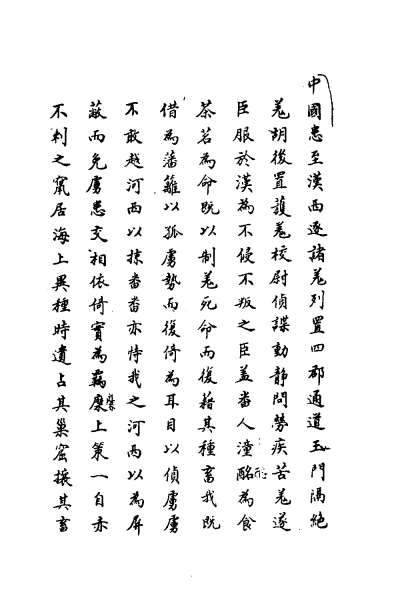 中國患至漢西逐諸羌列置四郡通道玉門隔絶
羌胡後置護羌校尉偵諜動靜問勞疾苦羌遂
臣服於漢為不侵不叛之臣盖畨人潼酪為食
茶茗為命既以制羌死命而復藉其種畜我既
借為藩籬以孤虜勢而復倚為耳目以偵虜虜
不敢越河西以掠畨畨亦恃我之河西以為屏
蔽而免虜患交相依倚實為羈縻上策一自亦
不剌之竄居海上異種時遺占其巢窟攘其畜